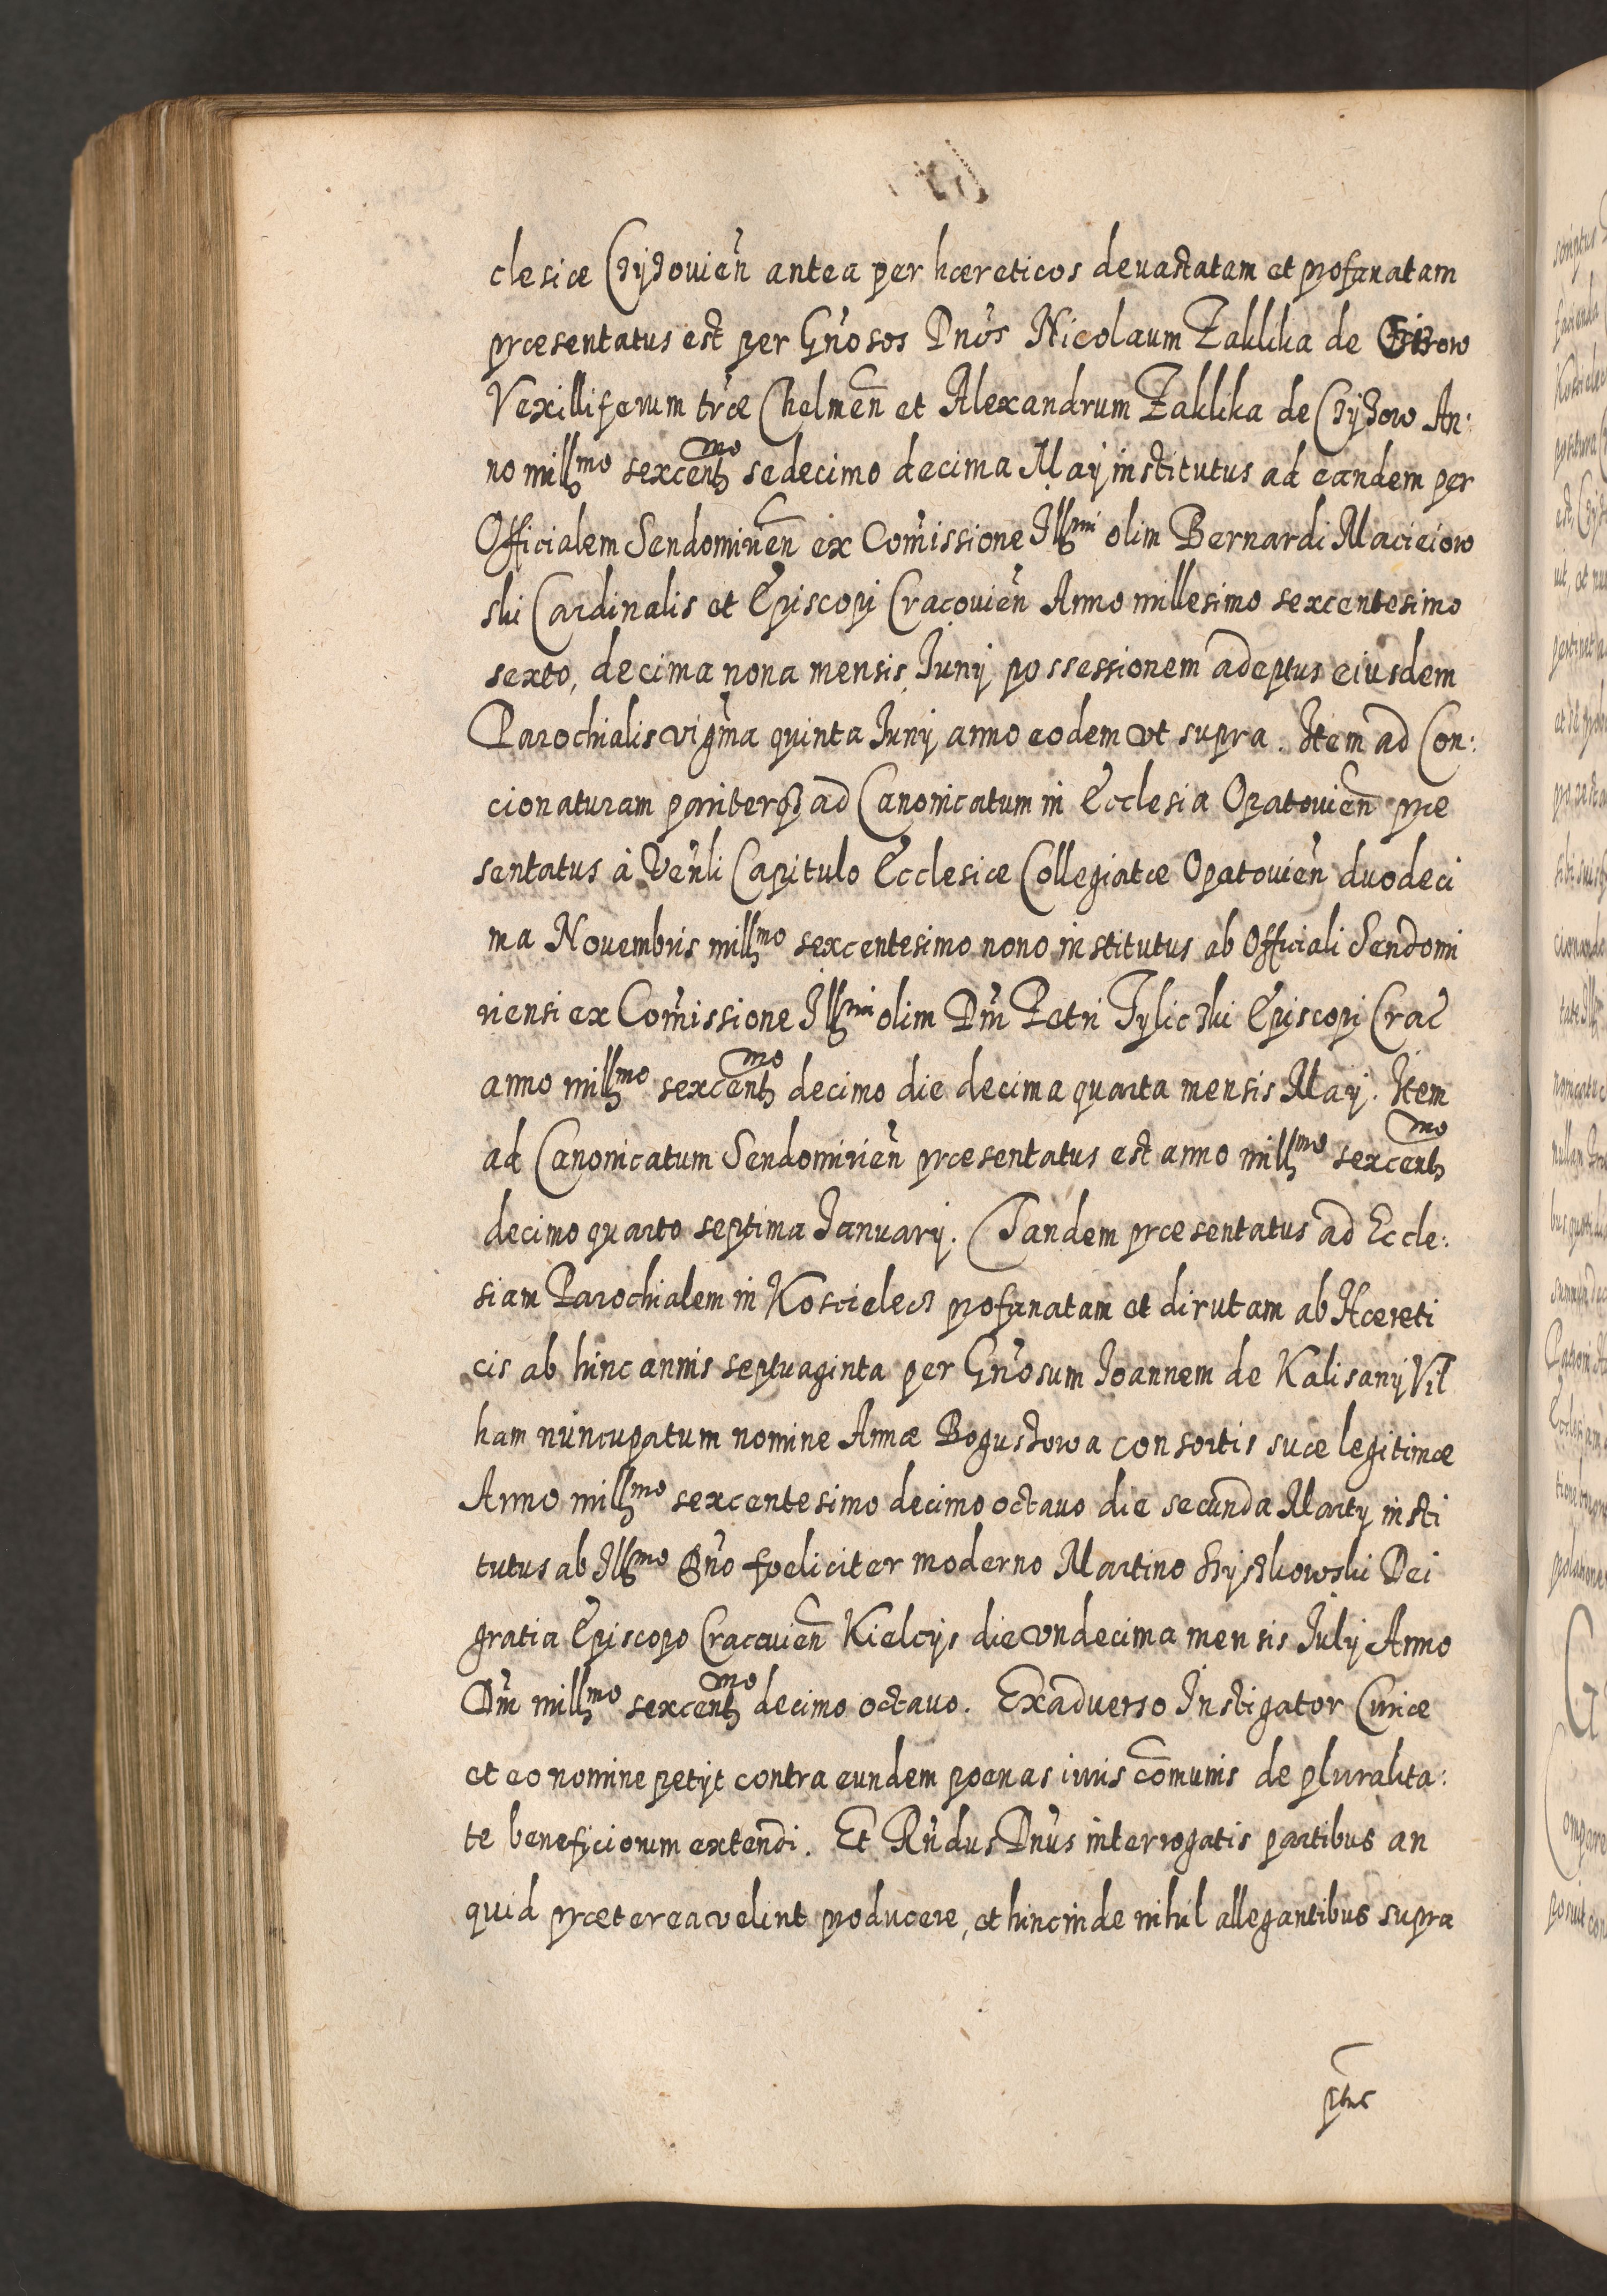 clesiæ Czyżouien̄ antea per hæreticos deuastatam et profanatam
præsentatus est per Gn̄osos Dnōs Nicolaum Zaklika de Czizow
Vexilliferum tr̄ræ Chelmen̄ et Alexandrum Zaklika de Czyżow An:
no mill^mo sexcent^mo sedecimo decima Maÿ institutus ad eandem per
Officialem Sendomirien̄ ex Com̄issione Ill^mi olim Bernardi Macieiow
ski Cardinalis et Episcopi Cracouien̄ Anno millesimo sexcentesimo
sexto, decima nona mensis Iunÿ possessionem adeptus eiusdem
Parochialis vigm̄a quinta Iunÿ anno eodem vt supra. Item ad Con:
cionaturam pariterqȝ ad Canonicatum in Ecclesia Opatouien̄ præ
sentatus à Ven̄li Capitulo Ecclesiæ Collegiatæ Opatouien̄ duodeci
ma Nouembris mill^mo sexcentesimo nono institutus ab Officiali Sendomi
riensi ex Com̄issione Ill^mi olim Dn̄i Petri Tylicżki Episcopi Crac̄
anno mill^mo sexcent^mo decimo die decima quarta mensis Maÿ. Item
ad Canonicatum Sendomirien̄ præsentatus est anno mill^mo sexcent^mo
decimo quarto septima Ianuarÿ. Tandem præsentatus ad Eccle:
siam Parochialem in Koscielecz profanatam et dirutam ab Hæreti
cis ab hinc annis septuaginta per Gn̄osum Ioannem de Kalisanÿ Vit
ham nuncupatum nomine Annæ Bogustowa consortis suæ legitimæ
Anno mill^mo sexcentesimo decimo octauo die secunda Martÿ insti
tutus ab Ill^mo Dn̄o fœliciter moderno Martino Szyszkowski Dei
gratia Episcopo Cracouien̄ Kielcÿs die vndecima mensis Iulÿ Anno
Dn̄i mill^mo sexcent^mo decimo octauo. Exaduerso Instigator Curiæ
et eo nomine petÿt contra eundem poenas iuris com̄unis de pluralita:
te beneficiorum extendi. Et Rn̄dus Dn̄us interrogatis partibus an
quid præterea velint producere, et hincinde nihil allegantibus supra
ptus